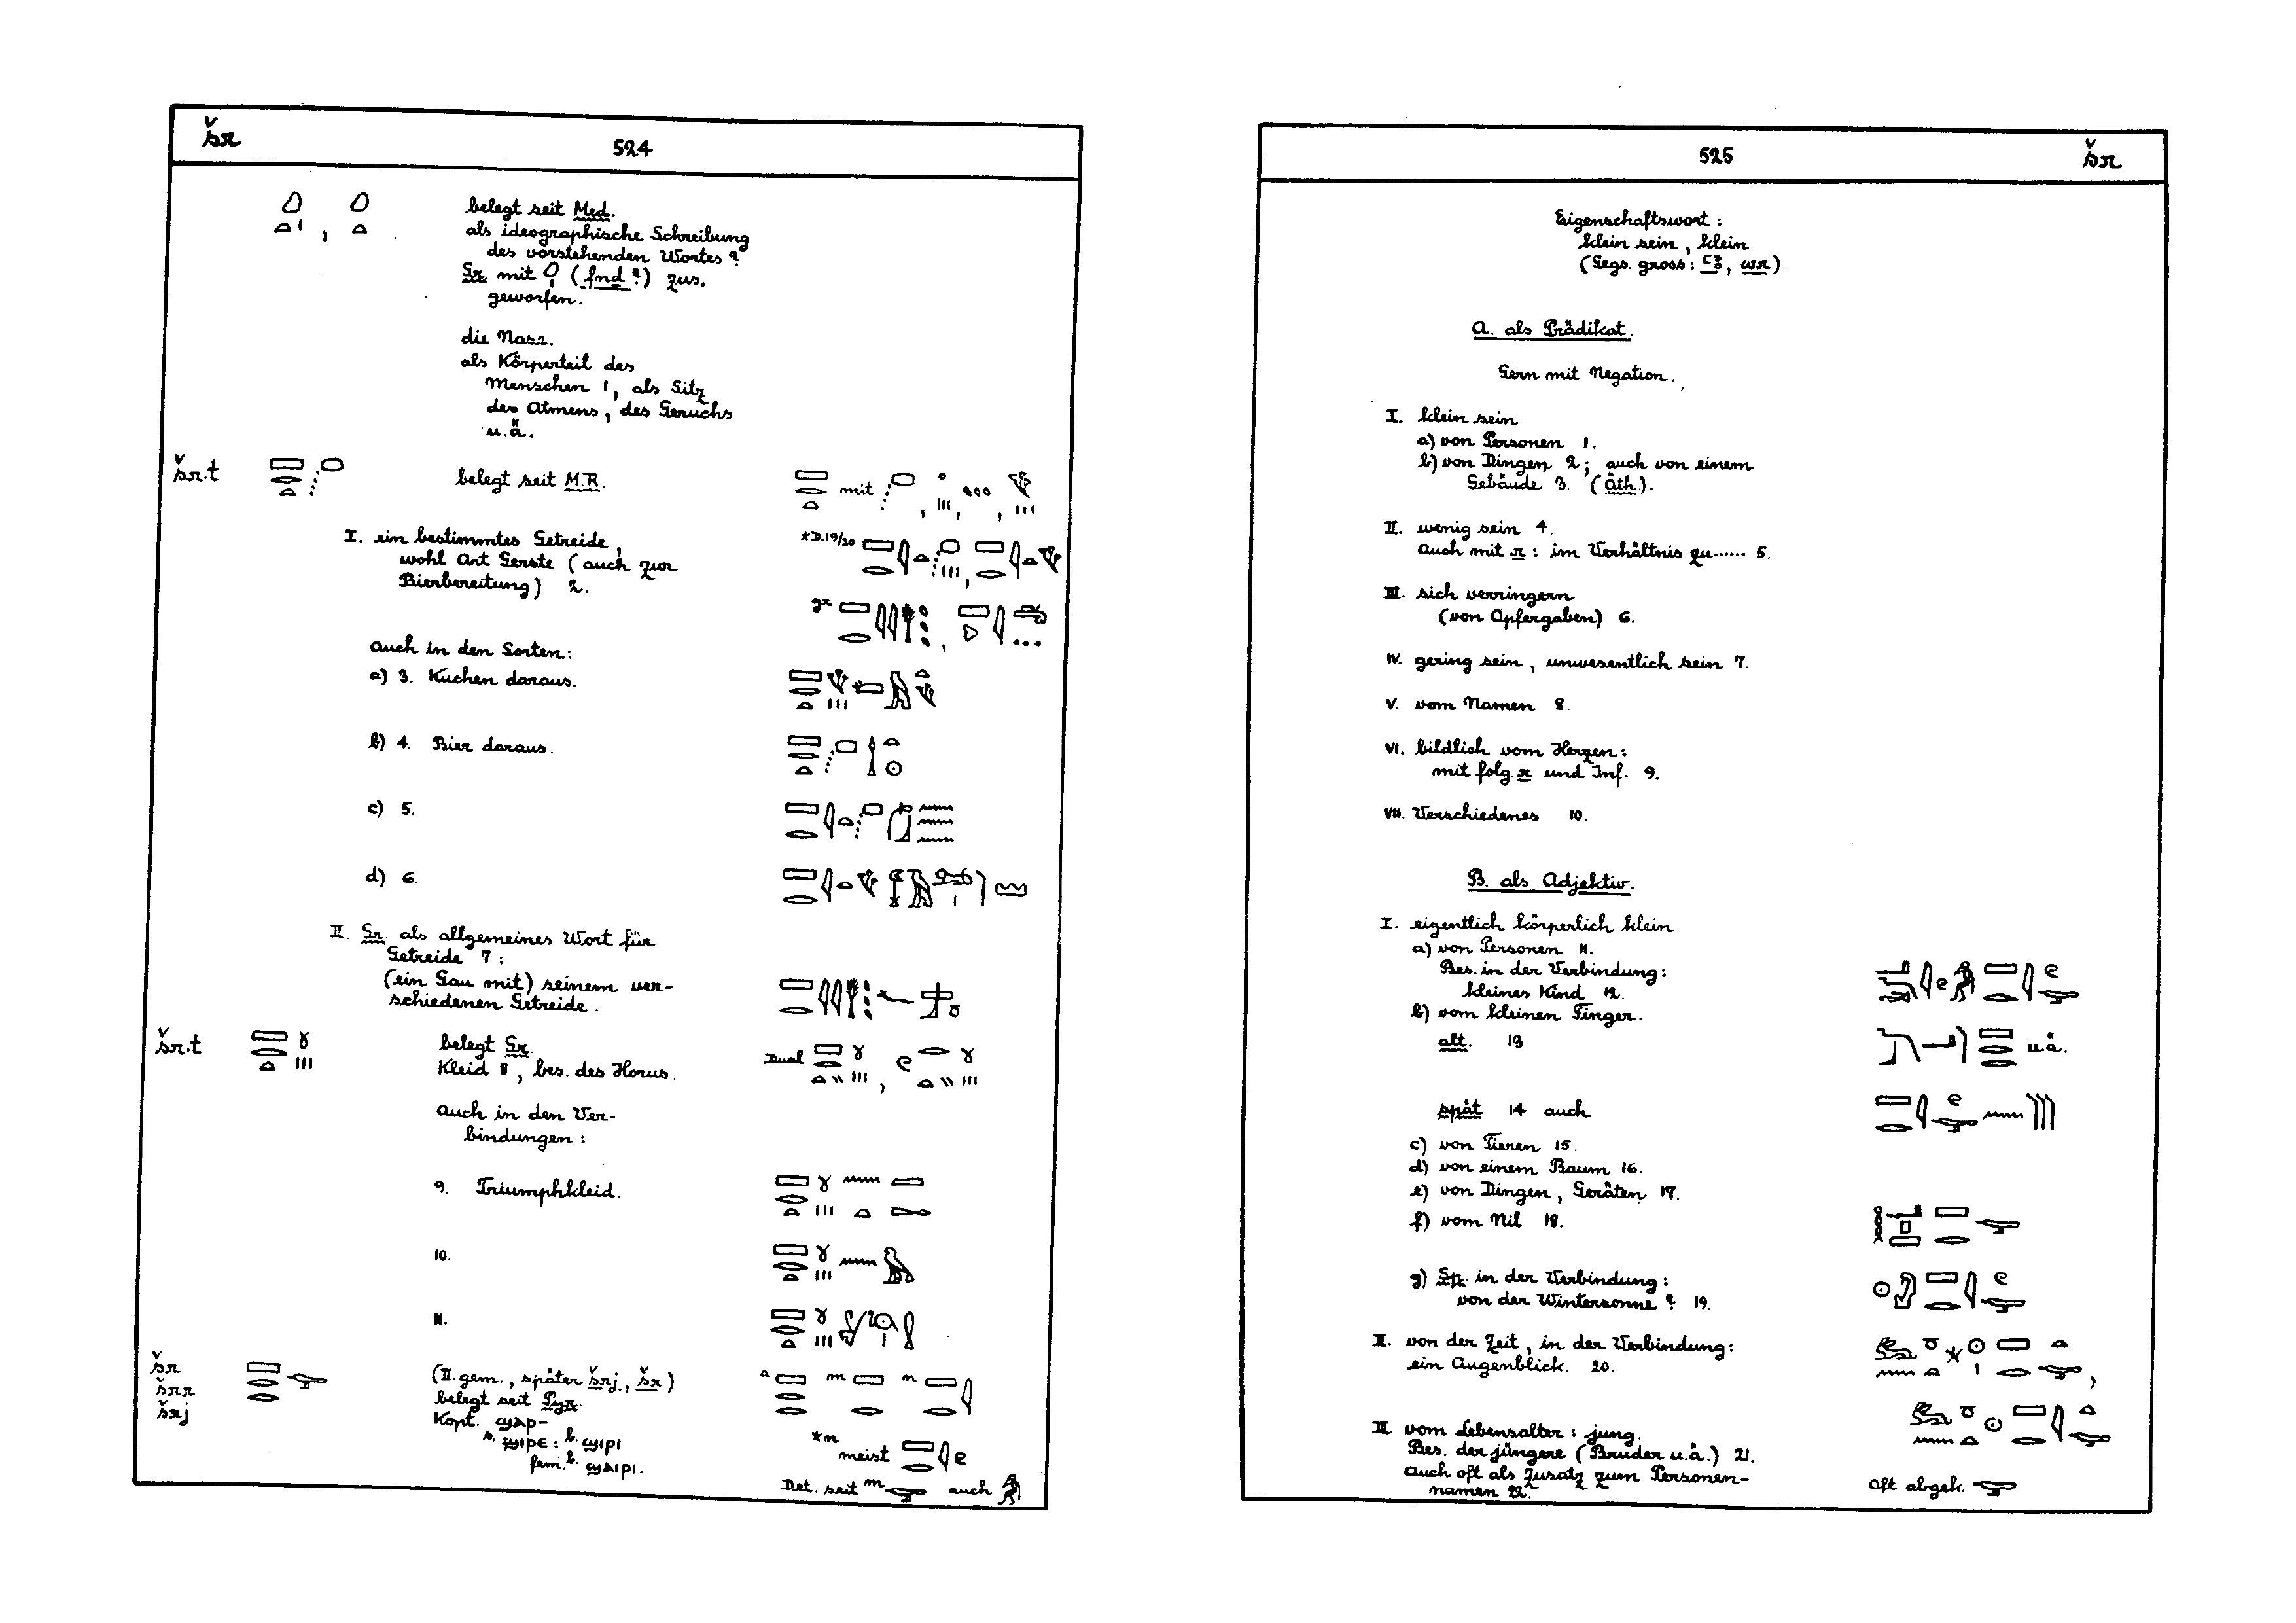 šr
524
belegt seit Med.
als ideographische Schreibung
des vorstehenden Wortes?
Gr. mit (fnd?) zus.
geworfen.
die Nase.
als Körperteil des
Menschen 1, als Sitz
des Atmens, des Geruchs
u.ä.
šr.t
belegt seit M.R.
mit
I. ein bestimmtes Getreide,
wohl Art Gerste (auch zur
Bierbereitung) 2.
*D.19/20
gr
auch in den Sorten:
a) 3. Kuchen daraus.
b) 4. Bier daraus.
c) 5.
d) 6.
II. Gr. als allgemeines Wort für
Getreide 7:
(ein Gau mit) seinem ver-
schiedenen Getreide.
šr.t
belegt Gr.
Kleid 8, bes. des Horus.
Dual
Auch in den Ver-
bindungen:
9. Triumphkleid.
10.
11.
šr
šrr
šrj
(II. gem., später šrj, šr)
belegt seit Pyr.
Kopt. ϣⲁⲣ-
s. ϣⲓⲣⲉ: b. ϣⲓⲣⲓ
fem. b. ϣⲁⲓⲣⲓ.
a m n
*n
meist
Det. seit m auch
525
šr
Eigenschaftswort:
klein sein, klein
(Gegs. gross: ꜥꜣ, wr)
A. als Prädikat.
Gern mit Negation.
I. klein sein
a) von Personen 1.
b) von Dingen 2; auch von einem
Gebäude 3. (Äth.).
II. wenig sein 4.
auch mit r: im Verhältnis zu...... 5.
III. sich verringern
(von Opfergaben) 6.
IV. gering sein, unwesentlich sein 7.
V. vom Namen 8.
VI. bildlich vom Herzen:
mit folg. r und Inf. 9.
VII. Verschiedenes 10.
B. als Adjektiv.
I. eigentlich körperlich klein
a) von Personen 11.
Bes. in der Verbindung:
kleines Kind 12.
b) vom kleinen Finger.
alt. 13
u.ä.
spät 14 auch
c) von Tieren 15.
d) von einem Baum 16.
e) von Dingen, Geräten 17.
f) vom Nil 18.
g) Sp. in der Verbindung:
von der Wintersonne? 19.
II. von der Zeit, in der Verbindung:
ein Augenblick. 20.
III. vom Lebensalter: jung.
Bes. der jüngere (Bruder u.ä.) 21.
Auch oft als Zusatz zum Personen-
namen 22.
Oft abgek.